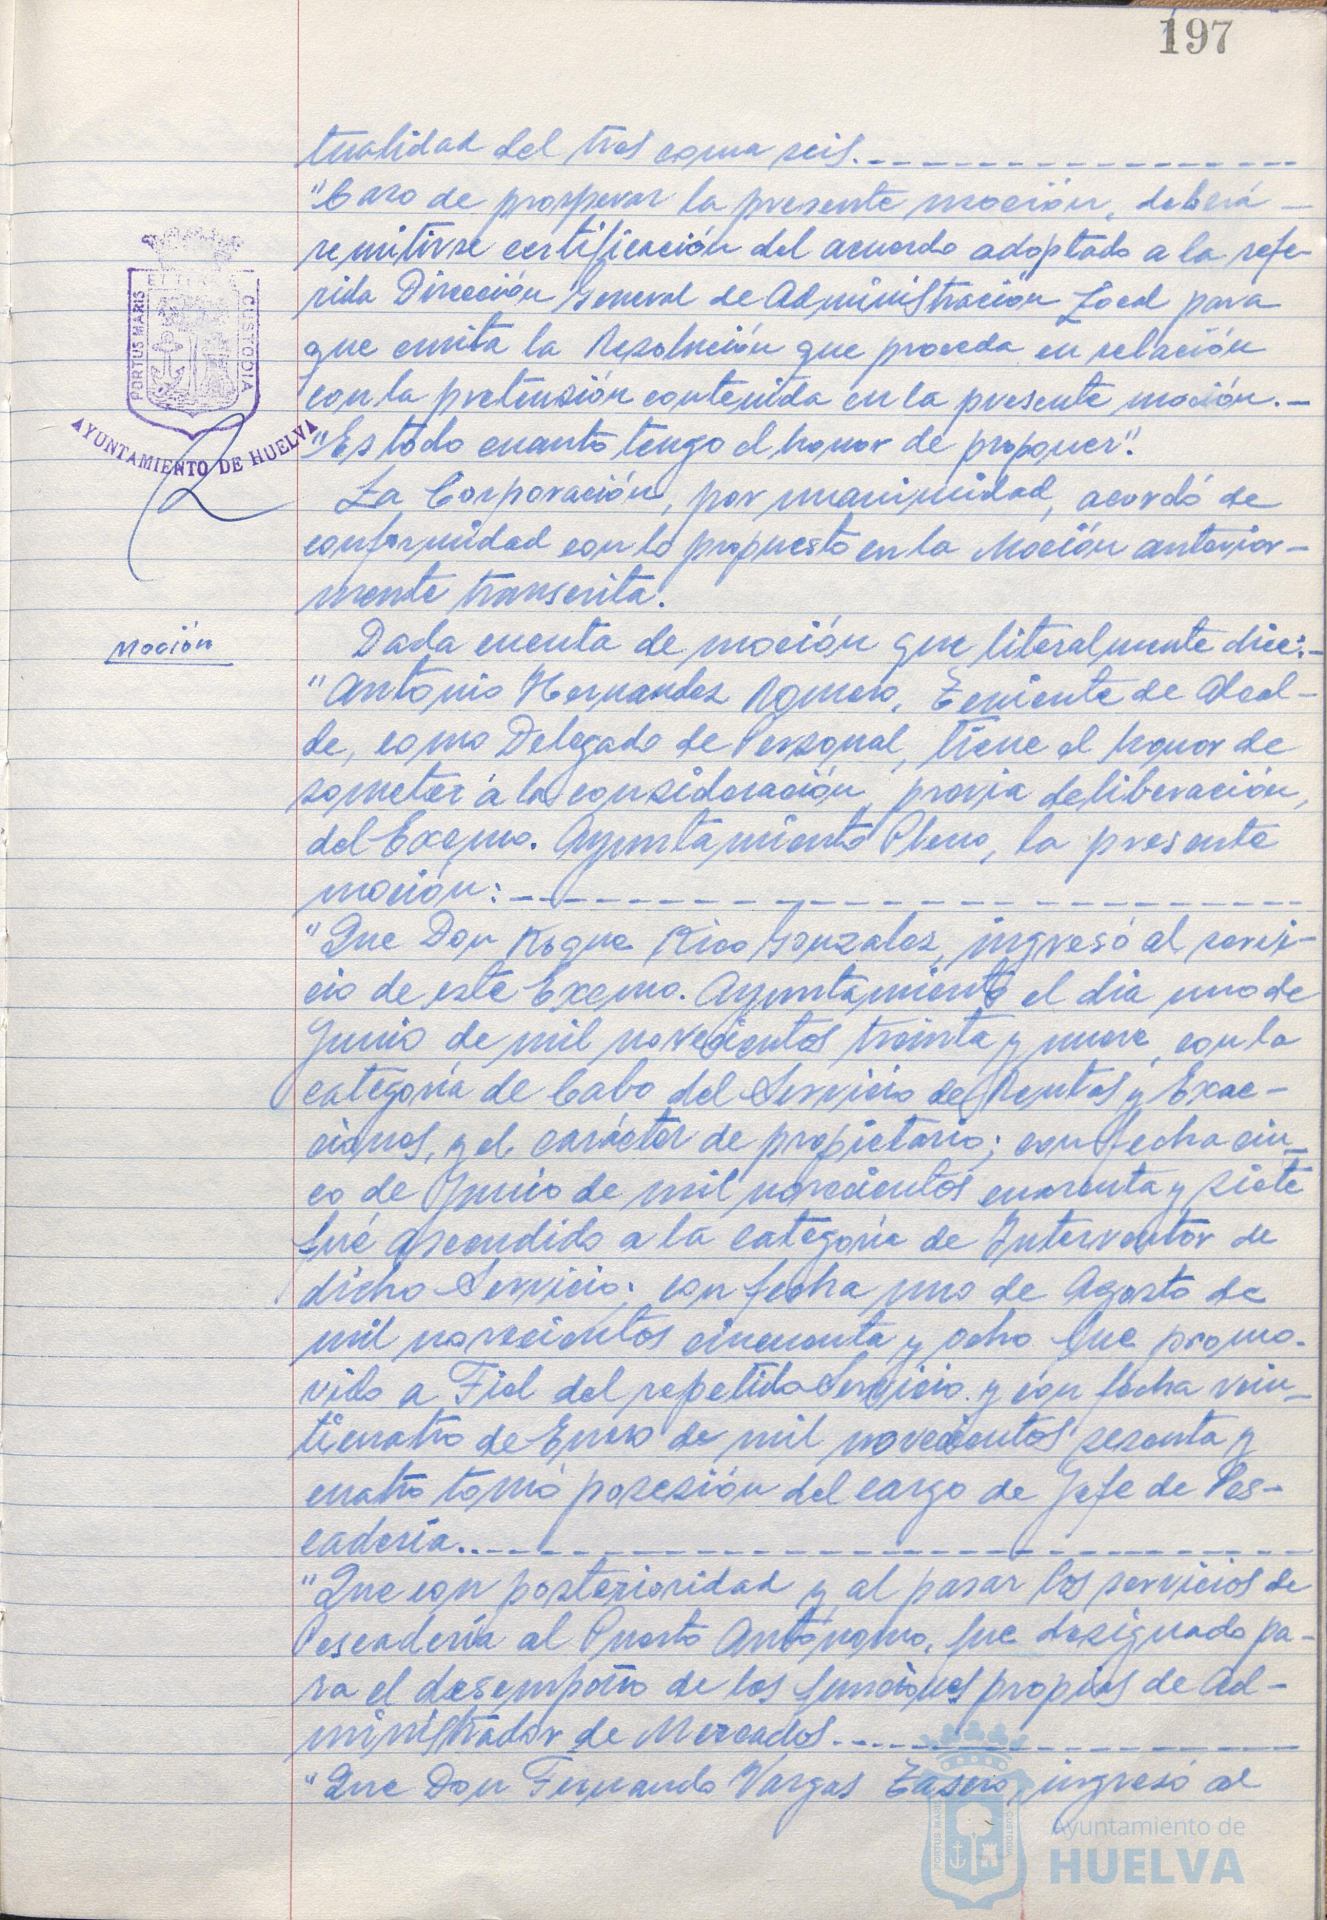 197
tualidad del tres coma seis.
"Caso de prosperar la presente moción, deberá
remitirse certificación del acuerdo adoptado a la refe-
rida Dirección General de Administración Local para
que emita la Resolución que proceda en relación
con la pretensión contenida en la presente moción.-
"Es todo cuanto tengo el honor de proponer".
La Corporación, por unanimidad, acordó de
conformidad con lo propuesto en la Moción anterior-
mente transcrita.
Moción
Dada cuenta de moción que literalmente dice:-
"Antonio Hernandez Romero, Teniente de Alcal-
de, como Delegado de Personal, tiene el honor de
someter a la consideración, previa deliberación,
del Excmo. Ayuntamiento Pleno, la presente
moción:
"Que Don Roque Rico Gonzalez, ingresó al servi-
cio de este Excmo. Ayuntamiento el dia uno de
Junio de mil novecientos treinta y nueve, con la
categoría de Cabo del Servicio de Rentas y Exac-
ciones, y el carácter de propietario; con fecha cin-
co de Junio de mil novecientos cuarenta y siete
fué ascendido a la categoría de Interventor de
dicho Servicio; con fecha uno de Agosto de
mil novecientos cincuenta y ocho fue promo-
vido a Fiel del repetido Servicio y con fecha vein-
ticuatro de Enero de mil novecientos sesenta y
cuatro tomó posesión del cargo de Jefe de Pes-
cadería.
"Que con posterioridad y al pasar los servicios de
Pescadería al Puerto Autónomo, fue designado pa-
ra el desempeño de las funciones propias de Ad-
ministrador de Mercados.
"Que Don Fernando Vargas ingresó al
PORTUS MARIS CUSTODIA
AYUNTAMIENTO DE HUELVA
Ayuntamiento de
HUELVA